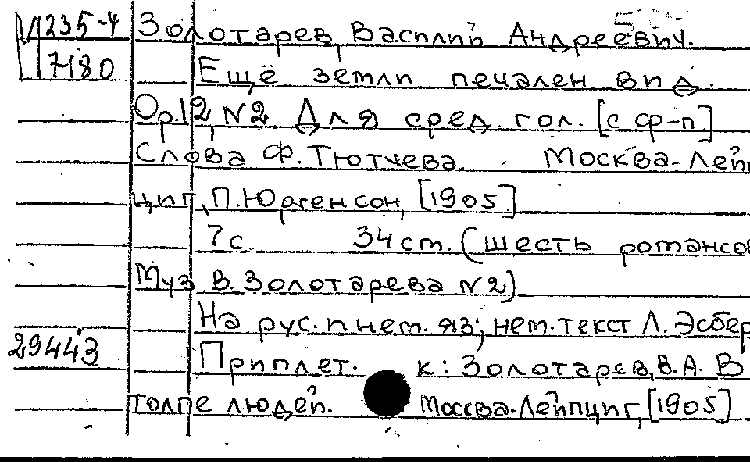 Ц235-4 Золотарев, Василий Андреевич.
7180 Ещё земли печален вид.
Ор.12, N2. Для сред. гол. [с ф-п]
Слова Ф. Тютчева. Москва-Лейп
циг, П. Юргенсон, [1905]
7с 34 ст. (шесть романсов
Муз В. Золотарева N2)
На рус. и нем. яз; нем. текст Л. Эсбер
29443 Приплет. к: Золотарев, В.А. В
толпе людей. Москва-Лейпциг, [1905]